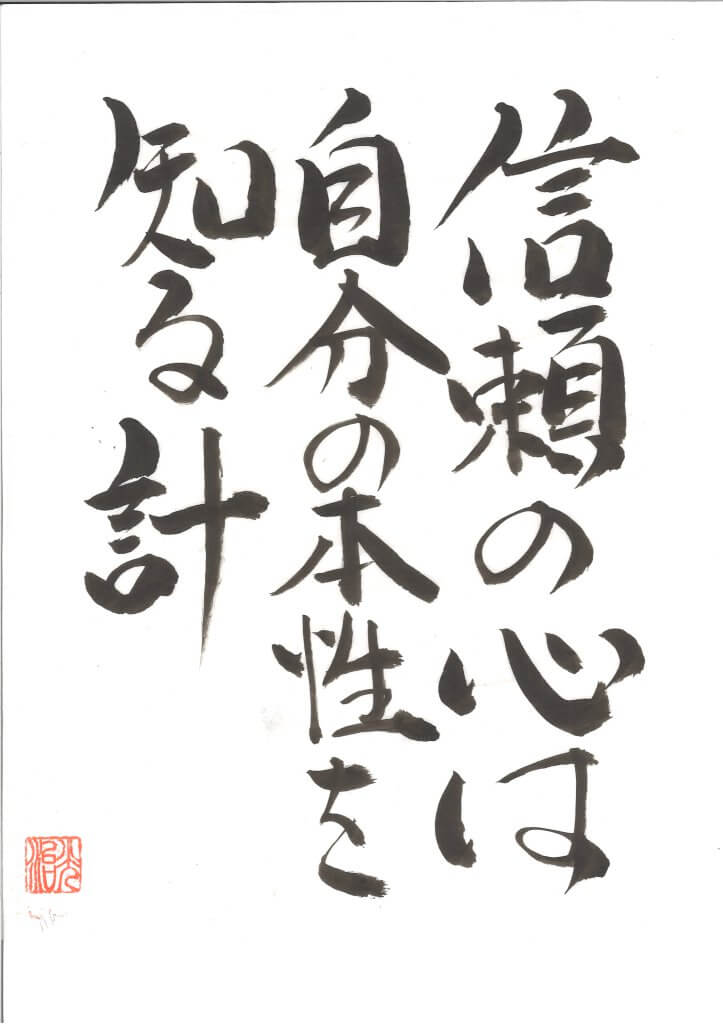 信頼の心は
自分の本性を
知る計